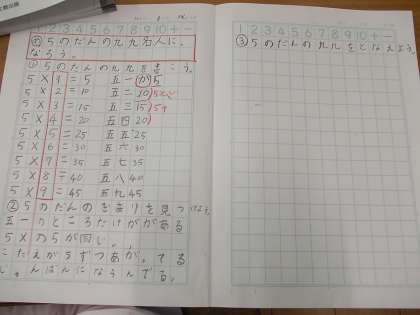 1 2 3 4 5 6 7 8 9 10 + −
め 5のだんの九九名人に
なろう。
① 5のだんの九九を書こう。
5×1=5 五一が5
5×2=10 五二10
5×3=15 五三15
5×4=20 五四20
5×5=25 五五25
5×6=30 五六30
5×7=35 五七35
5×8=40 五八40
5×9=45 五九45
② 5のだんのきまりを見つけよう
五一のところだけががある
5×の5が同じ。
こたえが5ずつあがってる
1 2 3 4 5 6 7 8 9 10 + −
③ 5のだんの九九をとなえよう